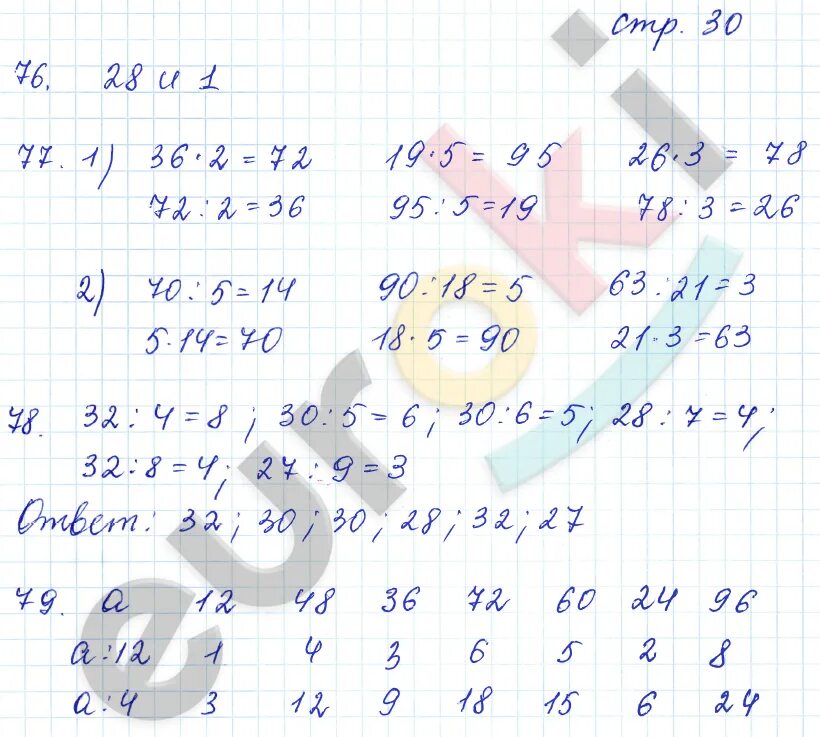 стр. 30
76. 28 и 1
77. 1) 36·2=72 19·5=95 26·3=78
72:2=36 95:5=19 78:3=26
2) 70:5=14 90:18=5 63:21=3
5·14=70 18·5=90 21·3=63
78. 32:4=8; 30:5=6; 30:6=5; 28:7=4;
32:8=4; 27:9=3
Ответ: 32; 30; 30; 28; 32; 27
79. а 12 48 36 72 60 24 96
а:12 1 4 3 6 5 2 8
а:4 3 12 9 18 15 6 24
euroki